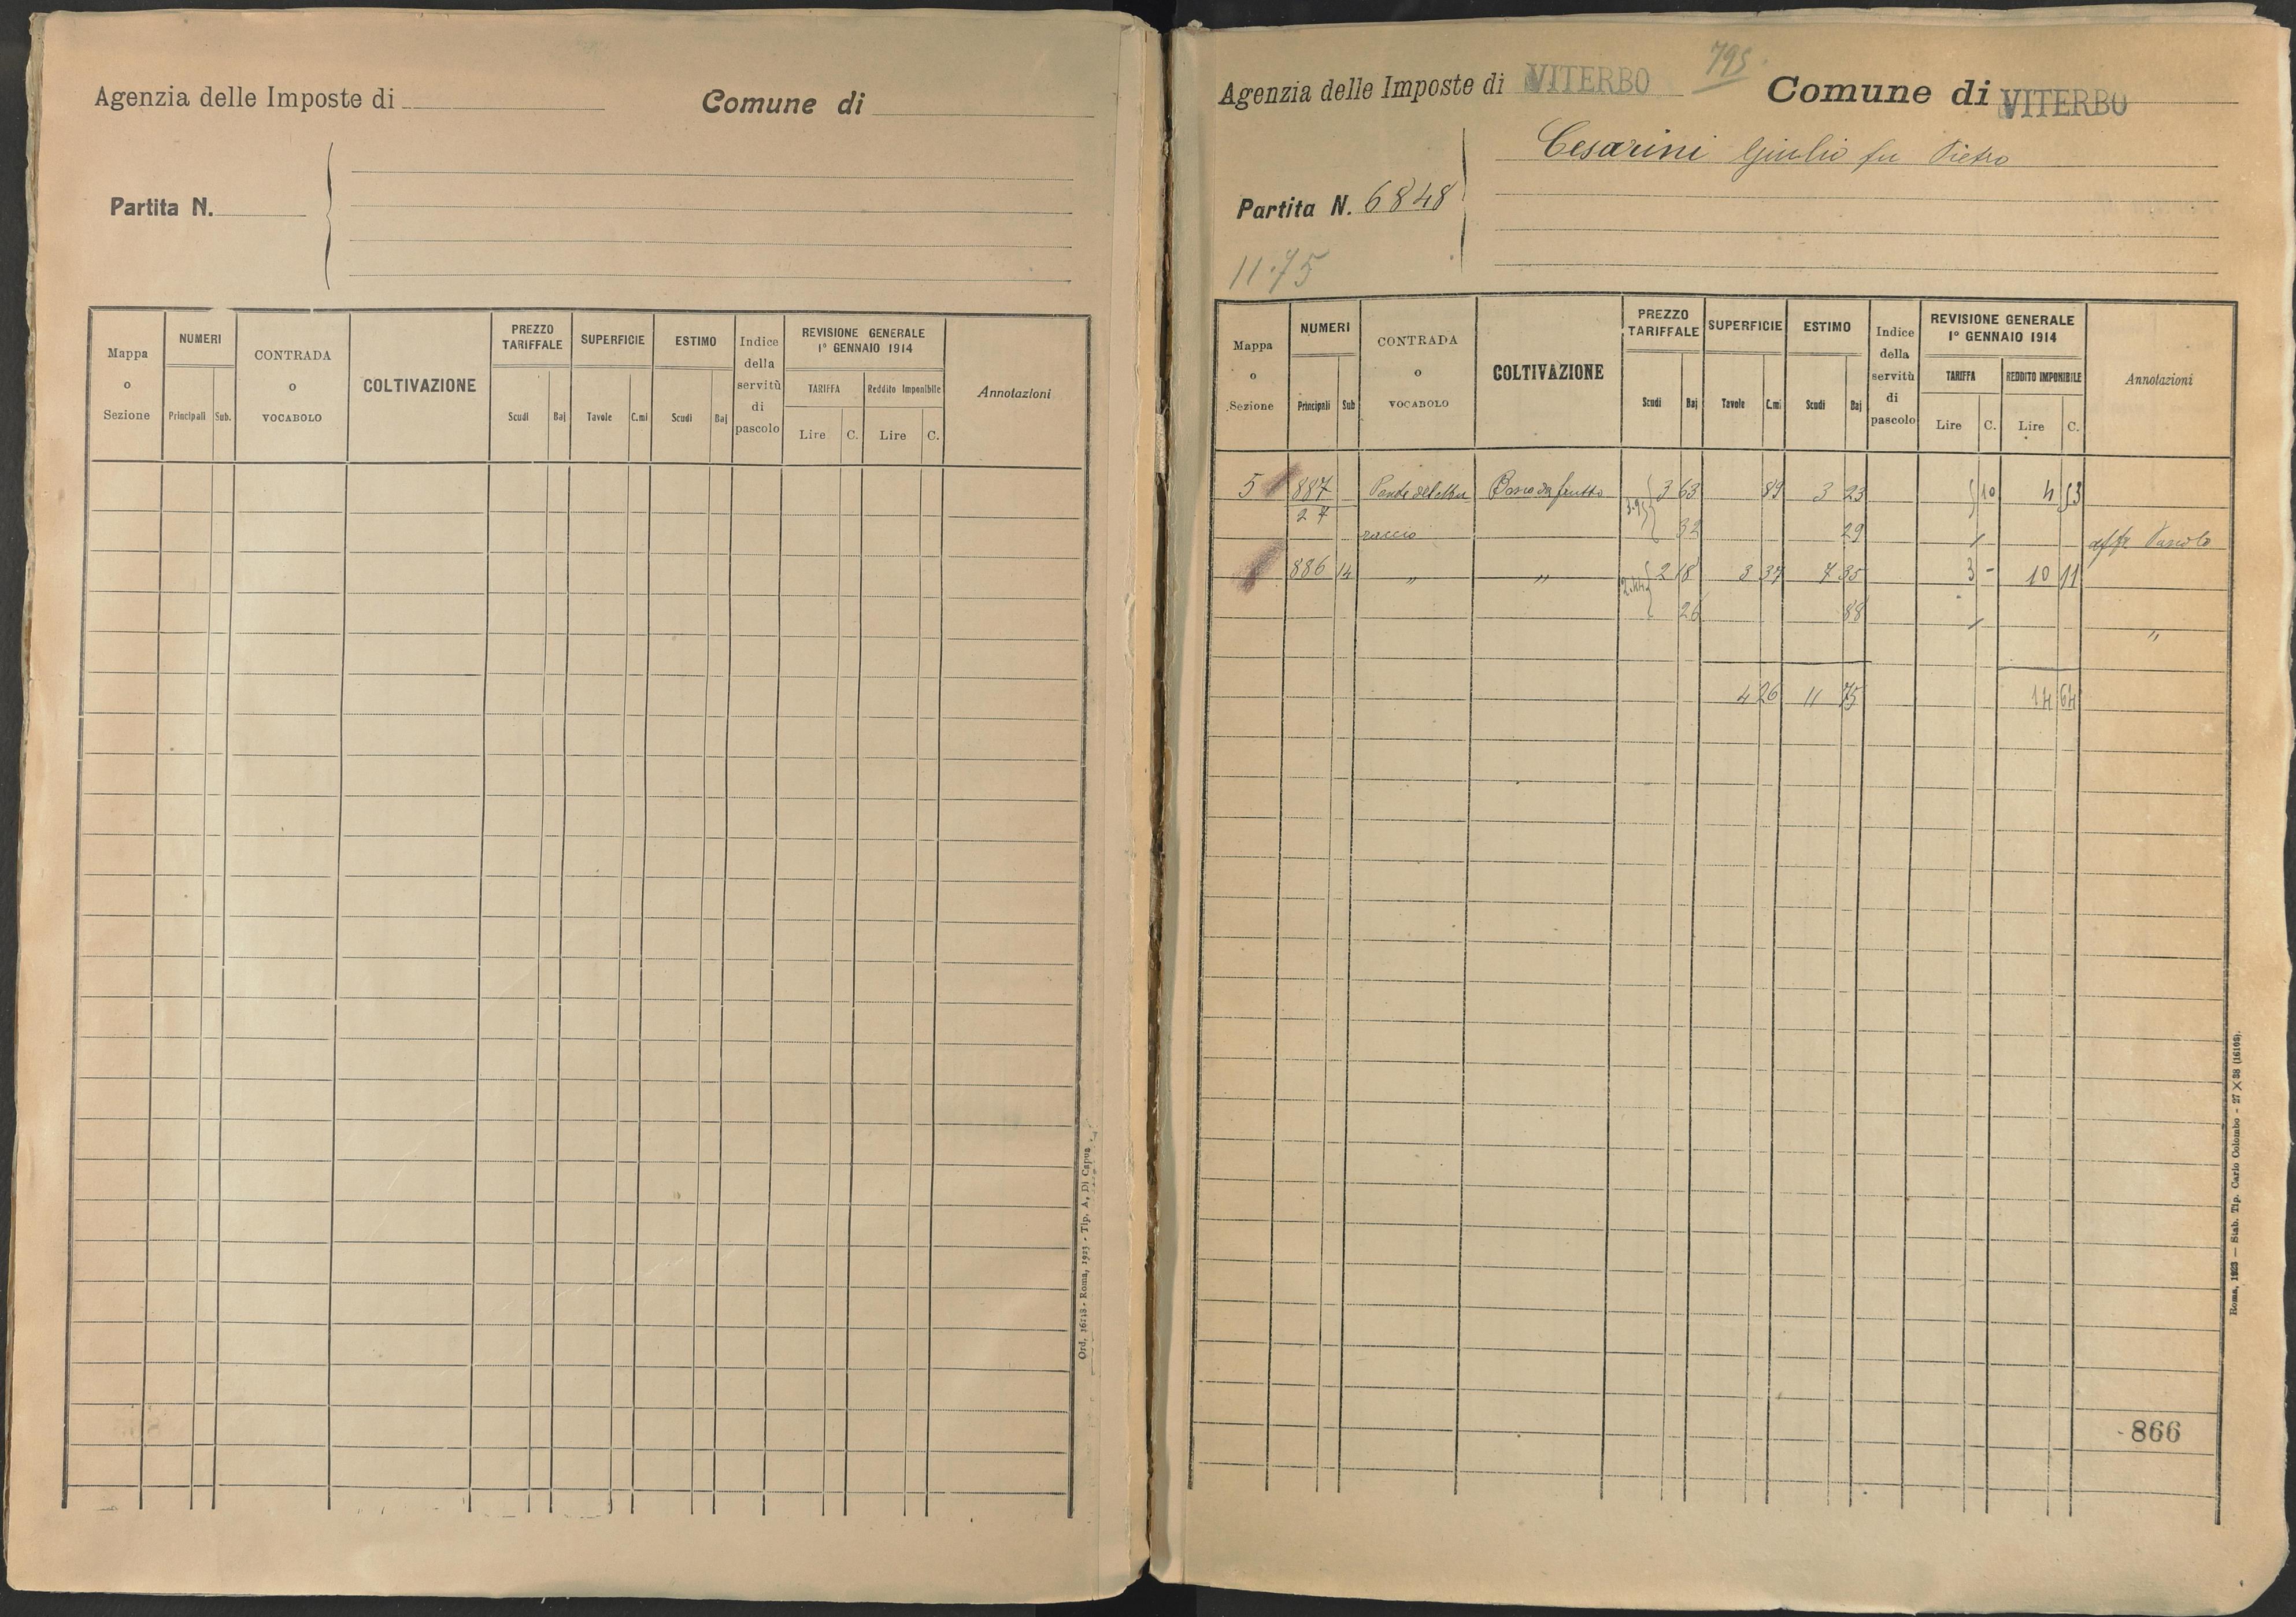 Agenzia delle Imposte di
Comune di
Partita N.
Mappa o Sezione
NUMERI
Principali Sub.
CONTRADA o VOCABOLO
COLTIVAZIONE
PREZZO TARIFFALE
Scudi Baj
SUPERFICIE
Tavole C.mi
ESTIMO
Scudi Baj
Indice della servitù di pascolo
REVISIONE GENERALE 1° GENNAIO 1914
TARIFFA
Lire C.
Reddito Imponibile
Lire C.
Annotazioni
Ord. 16118 - Roma, 1923 - Tip. A. Di Capua
795
Agenzia delle Imposte di VITERBO
Comune di VITERBO
Cesarini Giulio fu Pietro
Partita N. 6848
11.75
Mappa o Sezione
NUMERI
Principali Sub
CONTRADA o VOCABOLO
COLTIVAZIONE
PREZZO TARIFFALE
Scudi Baj
SUPERFICIE
Tavole C.mi
ESTIMO
Scudi Baj
Indice della servitù di pascolo
REVISIONE GENERALE 1° GENNAIO 1914
TARIFFA
Lire C.
REDDITO IMPONIBILE
Lire C.
Annotazioni
5 887 Bosco da frutto 3 63 89 3 23 5 10 4 53
27 raccio 32 29 Pascolo
886 14 " " 2 18 3 37 7 35 3 - 10 11
26 88 "
4 26 11 75 14 64
866
Roma, 1923 — Stab. Tip. Carlo Colombo - 27 × 38 (16105).